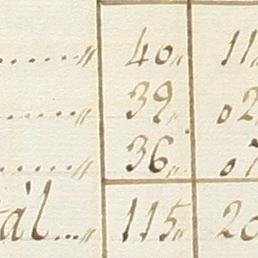 ....„ 40„ 11
....„ 39„ 02
....„ 36„ 07
tál...„ 115„ 20